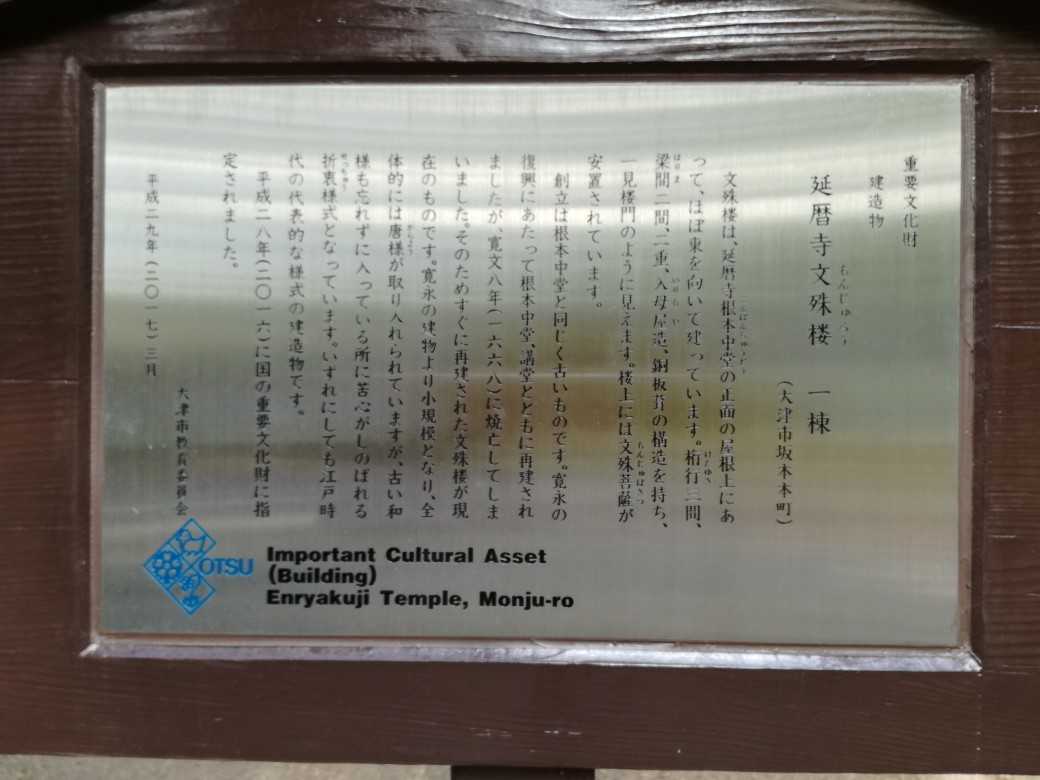 重要文化財
建造物
延暦寺文殊楼　一棟
もんじゅろう
(大津市坂本本町)
文殊楼は、延暦寺根本中堂の正面の屋根上にあ
こんぽんちゅうどう
って、ほぼ東を向いて建っています。桁行三間、
けたゆき
梁間二間、二重、入母屋造、銅板葺の構造を持ち、
はりま
いりもや
一見楼門のように見えます。楼上には文殊菩薩が
もんじゅぼさつ
安置されています。
創立は根本中堂と同じく古いものです。寛永の
復興にあたって根本中堂、講堂とともに再建され
ましたが、寛文八年(一六六八)に焼亡してしま
いました。そのためすぐに再建された文殊楼が現
在のものです。寛永の建物より小規模となり、全
体的には唐様が取り入れられていますが、古い和
からよう
様も忘れずに入っている所に苦心がしのばれる
折衷様式となっています。いずれにしても江戸時
せっちゅう
代の代表的な様式の建造物です。
平成二八年(二〇一六)に国の重要文化財に指
定されました。
平成二九年(二〇一七)三月
大津市教育委員会
OTSU
Important Cultural Asset
(Building)
Enryakuji Temple, Monju-ro